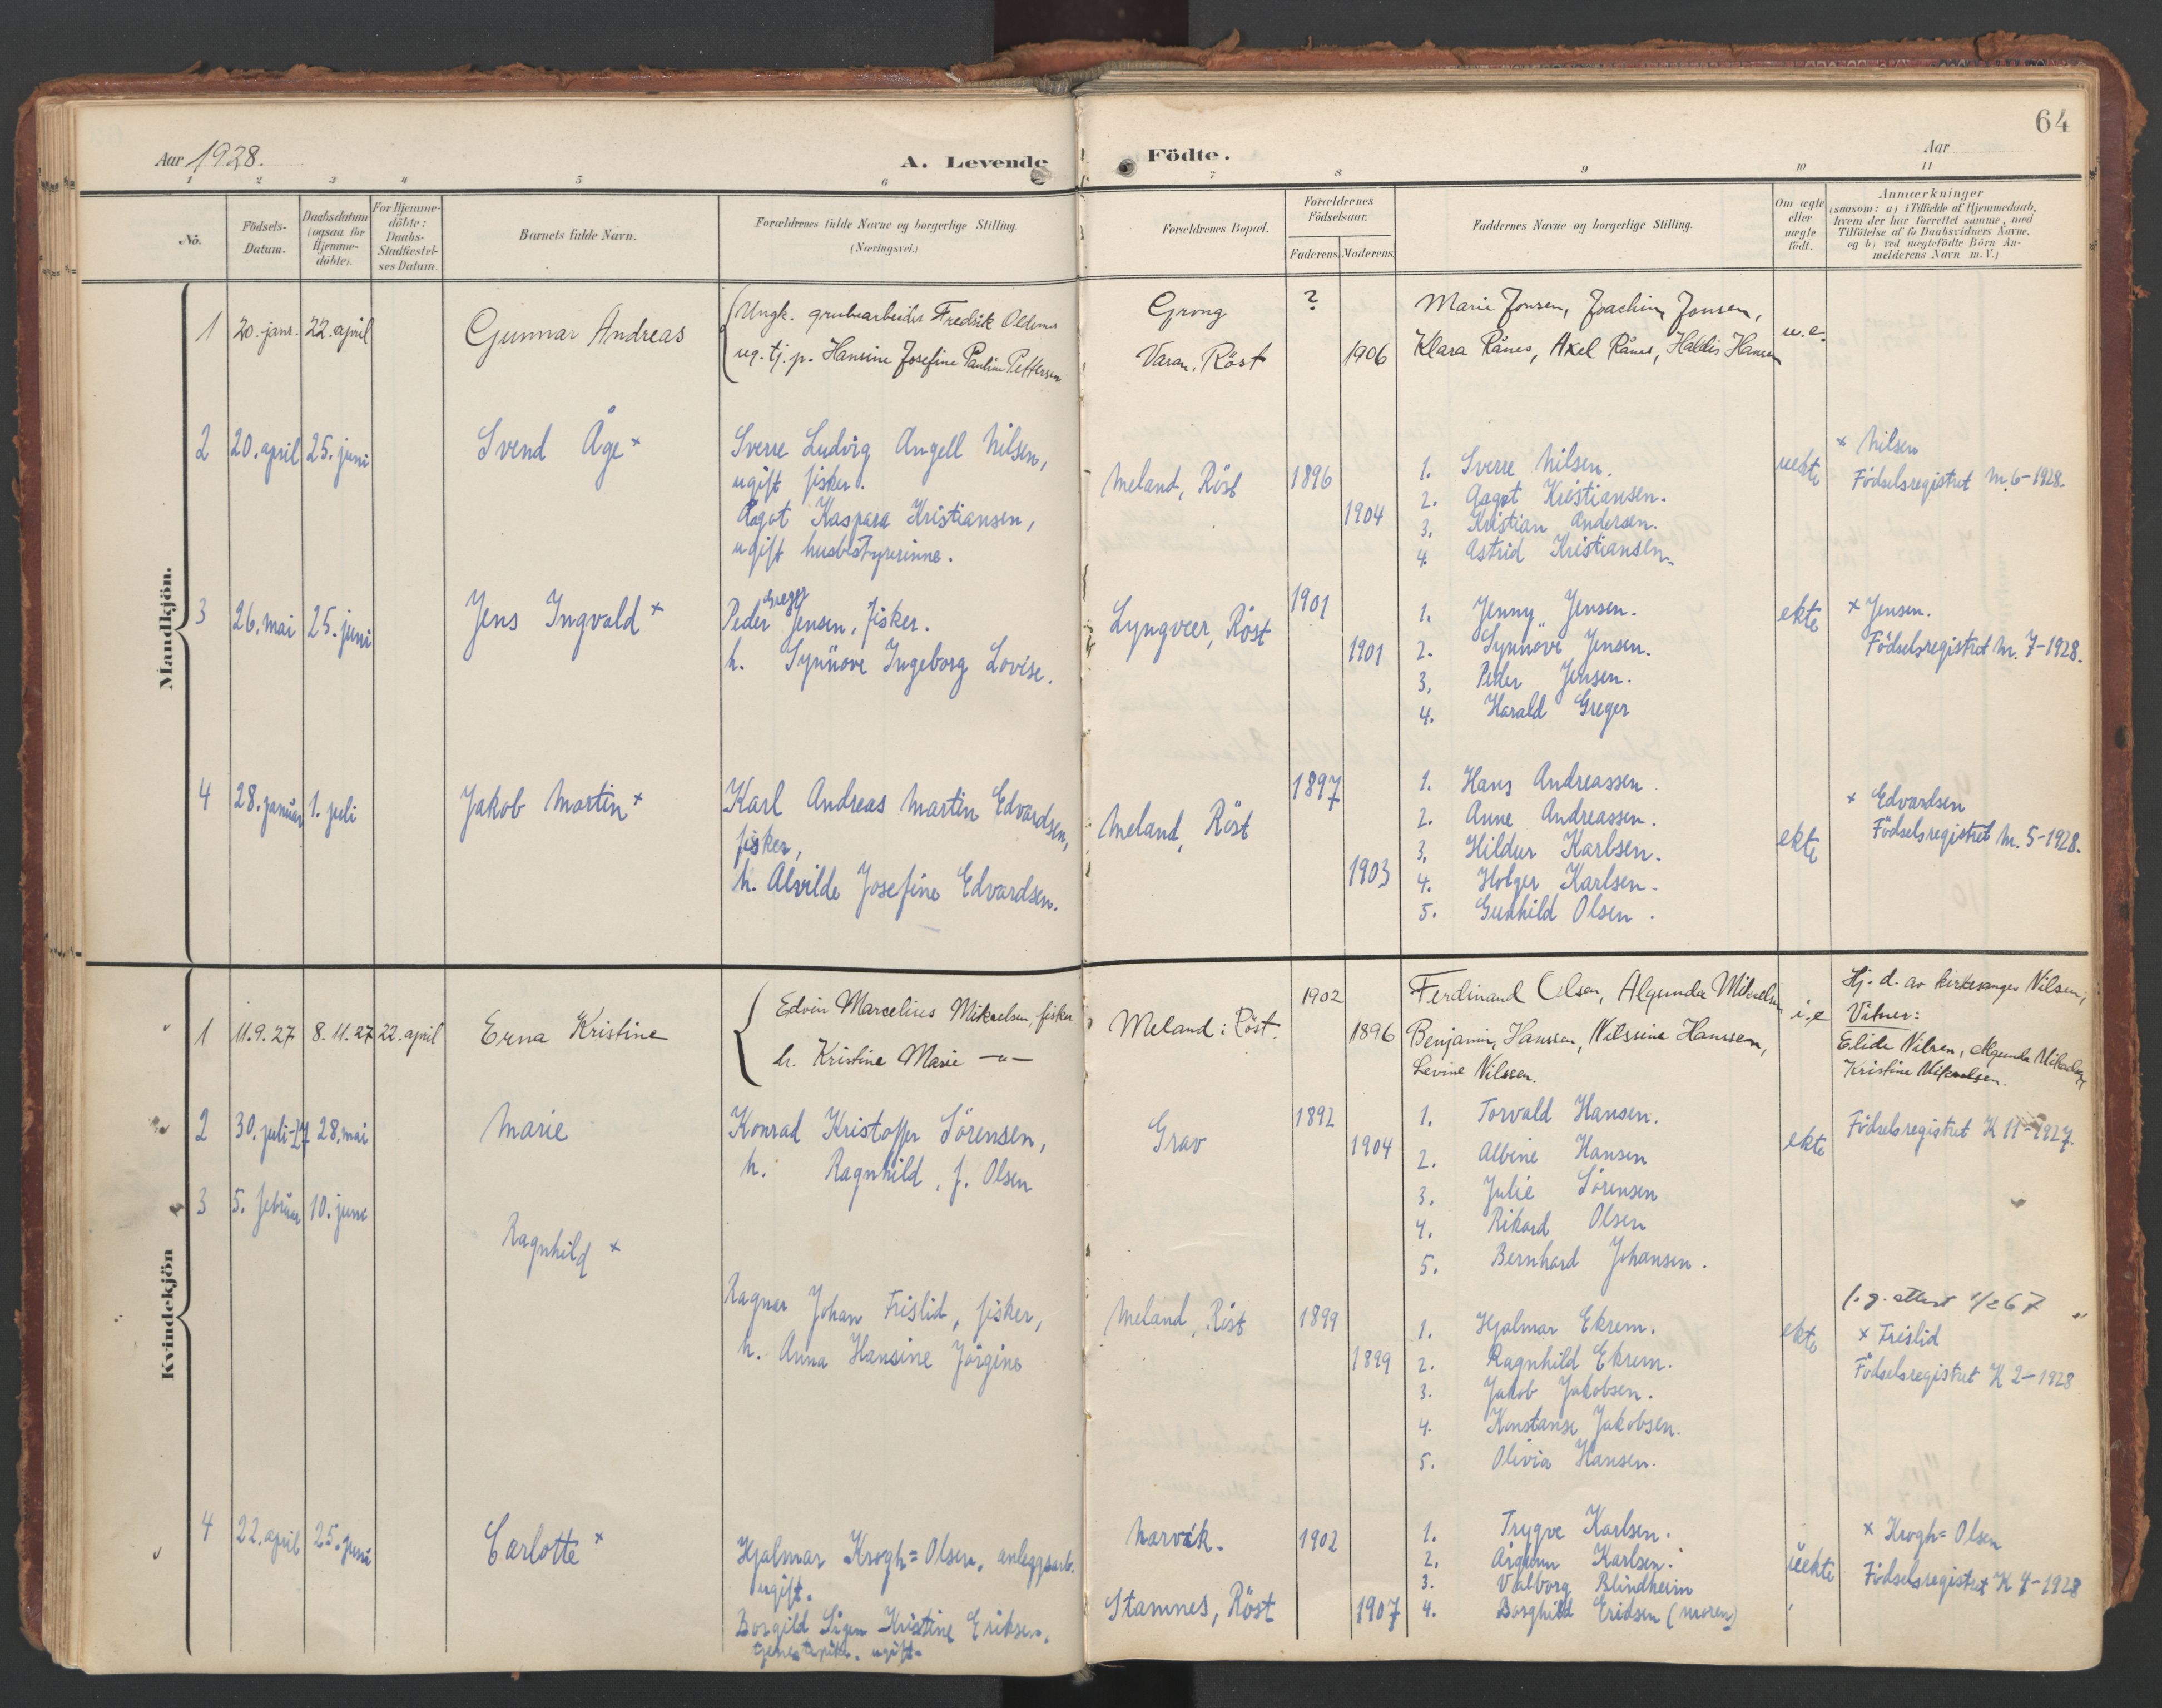 64
Aar 1928.
A. Levende Födte.
Aar
1 2 3 4 5 6 7 8 9 10 11
No.
Födsels-
Datum.
Daabsdatum
(ogsaa for
Hjemme-
döbte).
For Hjemme-
döbte:
Daabs-
Stadfæstel-
ses Datum.
Barnets fulde Navn.
Forældrenes fulde Navne og borgerlige Stilling.
(Næringsvei.)
Forældrenes Bopæl.
Forældrenes
Födselsaar.
Faderens. Moderens.
Faddernes Navne og borgerlige Stilling.
Om ægte
eller
uægte
födt.
Anmærkninger
(saasom: a) i Tilfælde af Hjemmedaab,
hvem der har forrettet samme, med
Tilföielse af to Daabsvidners Navne,
og b) ved uægtefödte Börn An-
melderens Navn m. V.)
Mandkjön.
1 20. janr. 22. april Gunnar Andreas
Ungk. grubearbeider Fredrik
ug. tj. p. Hansine Josefine Pauline Pettersen
Grong
Varan, Röst
? 1906
Marie Jonsen, Joachim Jonsen,
Klara Rånes, Axel Rånes, Haldis Hansen
u.e.
2 20. april 25. juni Svend Åge x
Sverre Ludvig Angell Nilsen,
ugift fisker.
Aagot Kaspara Kristiansen,
ugift husbestyrerinne.
Meland, Röst
1896 1904
1. Sverre Nilsen.
2. Aagot Kristiansen.
3. Kristian Andersen.
4. Astrid Kristiansen.
uekte
x Nilsen
Födselsregistret M. 6-1928.
3 26. mai 25. juni Jens Ingvald x
Greger
Peder Jensen, fisker.
h. Synnöve Ingeborg Lovise.
Lyngvær, Röst
1901 1901
1. Jenny Jensen.
2. Synnöve Jensen.
3. Peder Jensen.
4. Harald Greger
ekte
x Jensen.
Födselsregistret M. 7-1928.
4 28. januar 1. juli Jakob Martin x
Karl Andreas Martin Edvardsen,
fisker,
h. Alvilde Josefine Edvardsen.
Meland, Röst
1897 1903
1. Hans Andreassen
2. Anne Andreassen.
3. Hildur Karlsen.
4. Holger Karlsen.
5. Gunhild Olsen.
ekte
x Edvardsen
Födselsregistret M. 5-1928.
Kvindekjön
1 11.9.27 8.11.27 22. april Erna Kristine
Edvin Marcelius Mikaelsen, fisker
h. Kristine Marie —"—
Meland i Röst.
1902 1896
Ferdinand Olsen, Algunda Mikaelsen
Benjamin Hanssen, Nilssine Hanssen,
Levine Nilssen.
i.e
Hj. d. av kirkesanger Nilsen,
Vitner:
Elide Nilsen, Algunda Mikaelsen
Kristine Mikaelsen.
2 30. juli-27 28. mai Marie
Konrad Kristoffer Sörensen,
h. Ragnhild, f. Olsen
Grav
1892 1904
1. Torvald Hansen.
2. Albine Hansen
3. Julie Sörensen
4. Rikard Olsen
5. Bernhard Johansen.
ekte
Födselsregistret K 11-1927.
3 5. februar 10. juni Ragnhild x
Ragnar Johan Frislid, fisker,
h. Anna Hansine Jörgine
Meland, Röst
1899 1899
1. Hjalmar Ekrem.
2. Ragnhild Ekrem.
3. Jakob Jakobsen.
4. Konstanse Jakobsen.
5. Olivia Hansen.
ekte
f.g. attest 1/2 67
x Frislid
Födselsregistret K 2-1928
4 22. april 25. juni Carlotte x
Hjalmar Krogh=Olsen, anleggsarb.
ugift.
Borgild Signe Kristine Eriksen,
tjenestepike. ugift.
Narvik.
Stamnes, Röst
1902 1907
1. Trygve Karlsen.
2. Karlsen.
3. Valborg Blindheim
4. Borghild Eriksen (moren)
uekte
x Krogh=Olsen
Födselsregistret K 4-1928